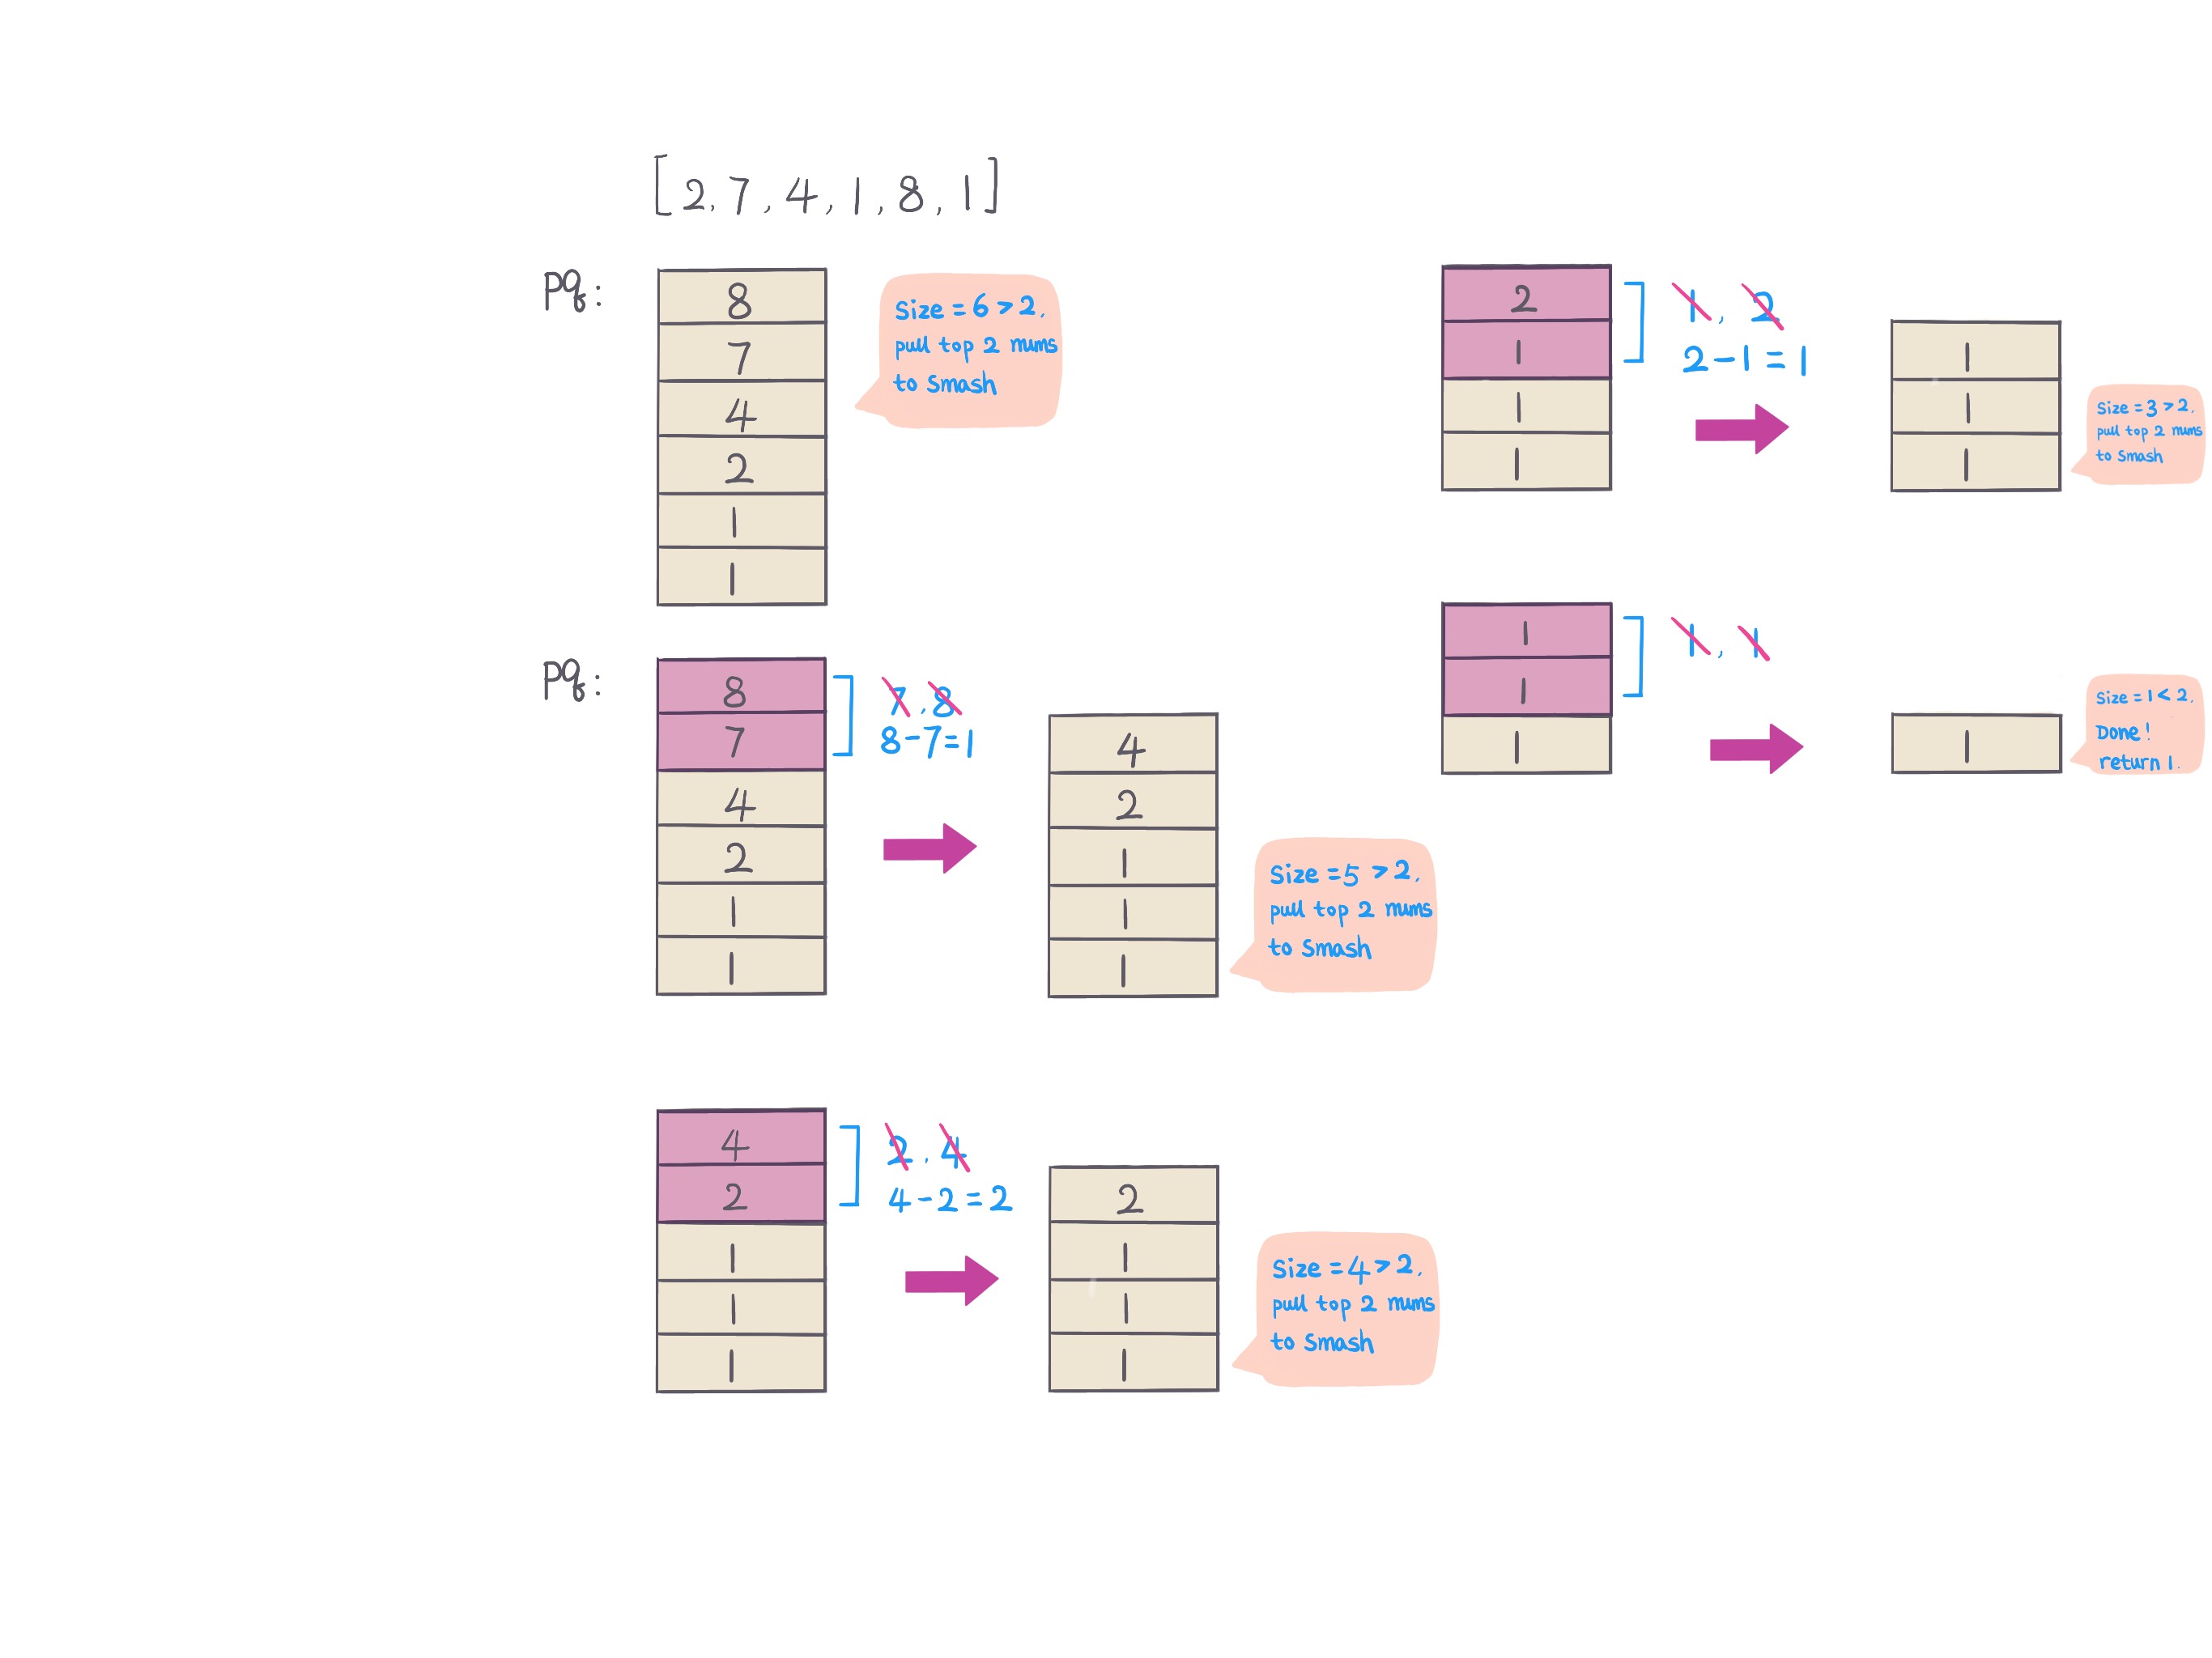 [2, 7, 4, 1, 8, 1]
Pq:
8
7
4
2
1
1
Size = 6 > 2,
pull top 2 nums
to smash
Pq:
8
7
4
2
1
1
7, 8
8-7=1
4
2
1
1
1
Size =5 > 2,
pull top 2 nums
to smash
4
2
1
1
1
2, 4
4-2=2
2
1
1
1
Size =4 > 2,
pull top 2 nums
to smash
2
1
1
1
1, 2
2-1=1
1
1
1
Size = 3 > 2,
pull top 2 nums
to smash
1
1
1
1, 1
1
Size = 1 < 2,
Done!
return 1.